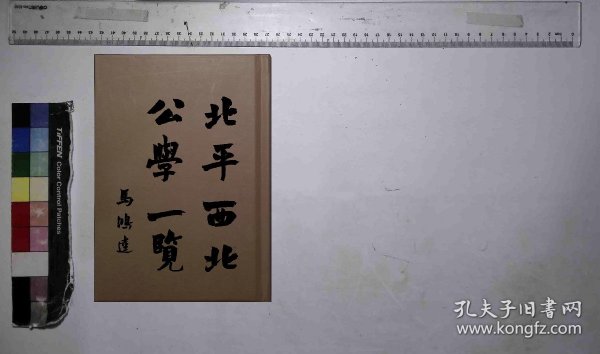 北平西北
公學一覽
馬鴻逵
TIFFEN Color Control Patches
孔夫子旧書网
www.kongfz.com